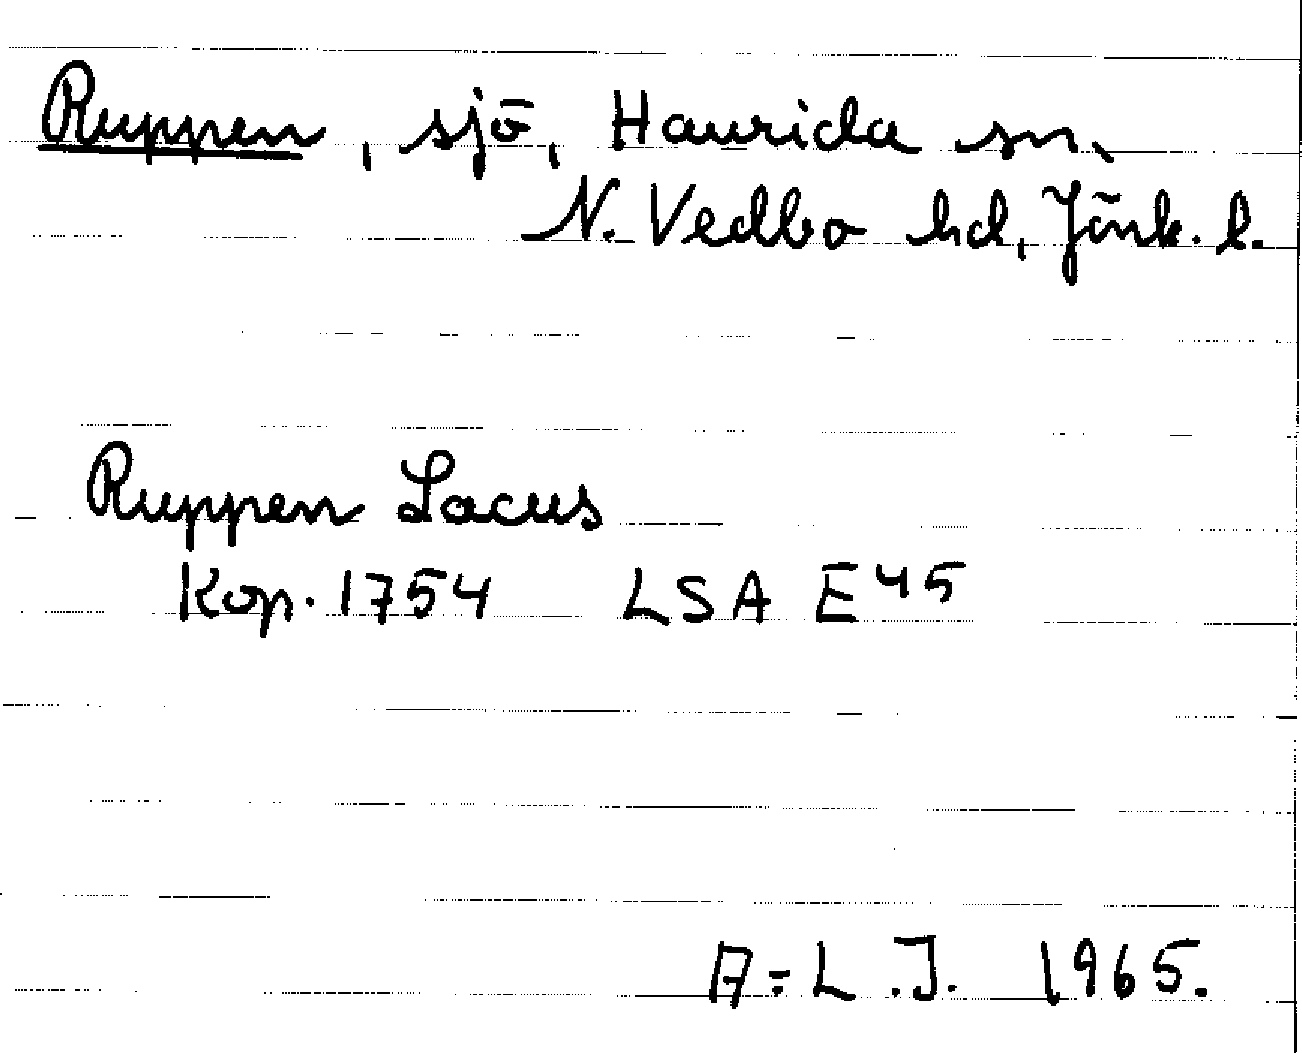 Ruppen, sjö, Haurida sn,
N. Vedbo hd, Jönk. l.
Ruppen Lacus
Kop. 1754 LSA E45
A-L.J. 1965.